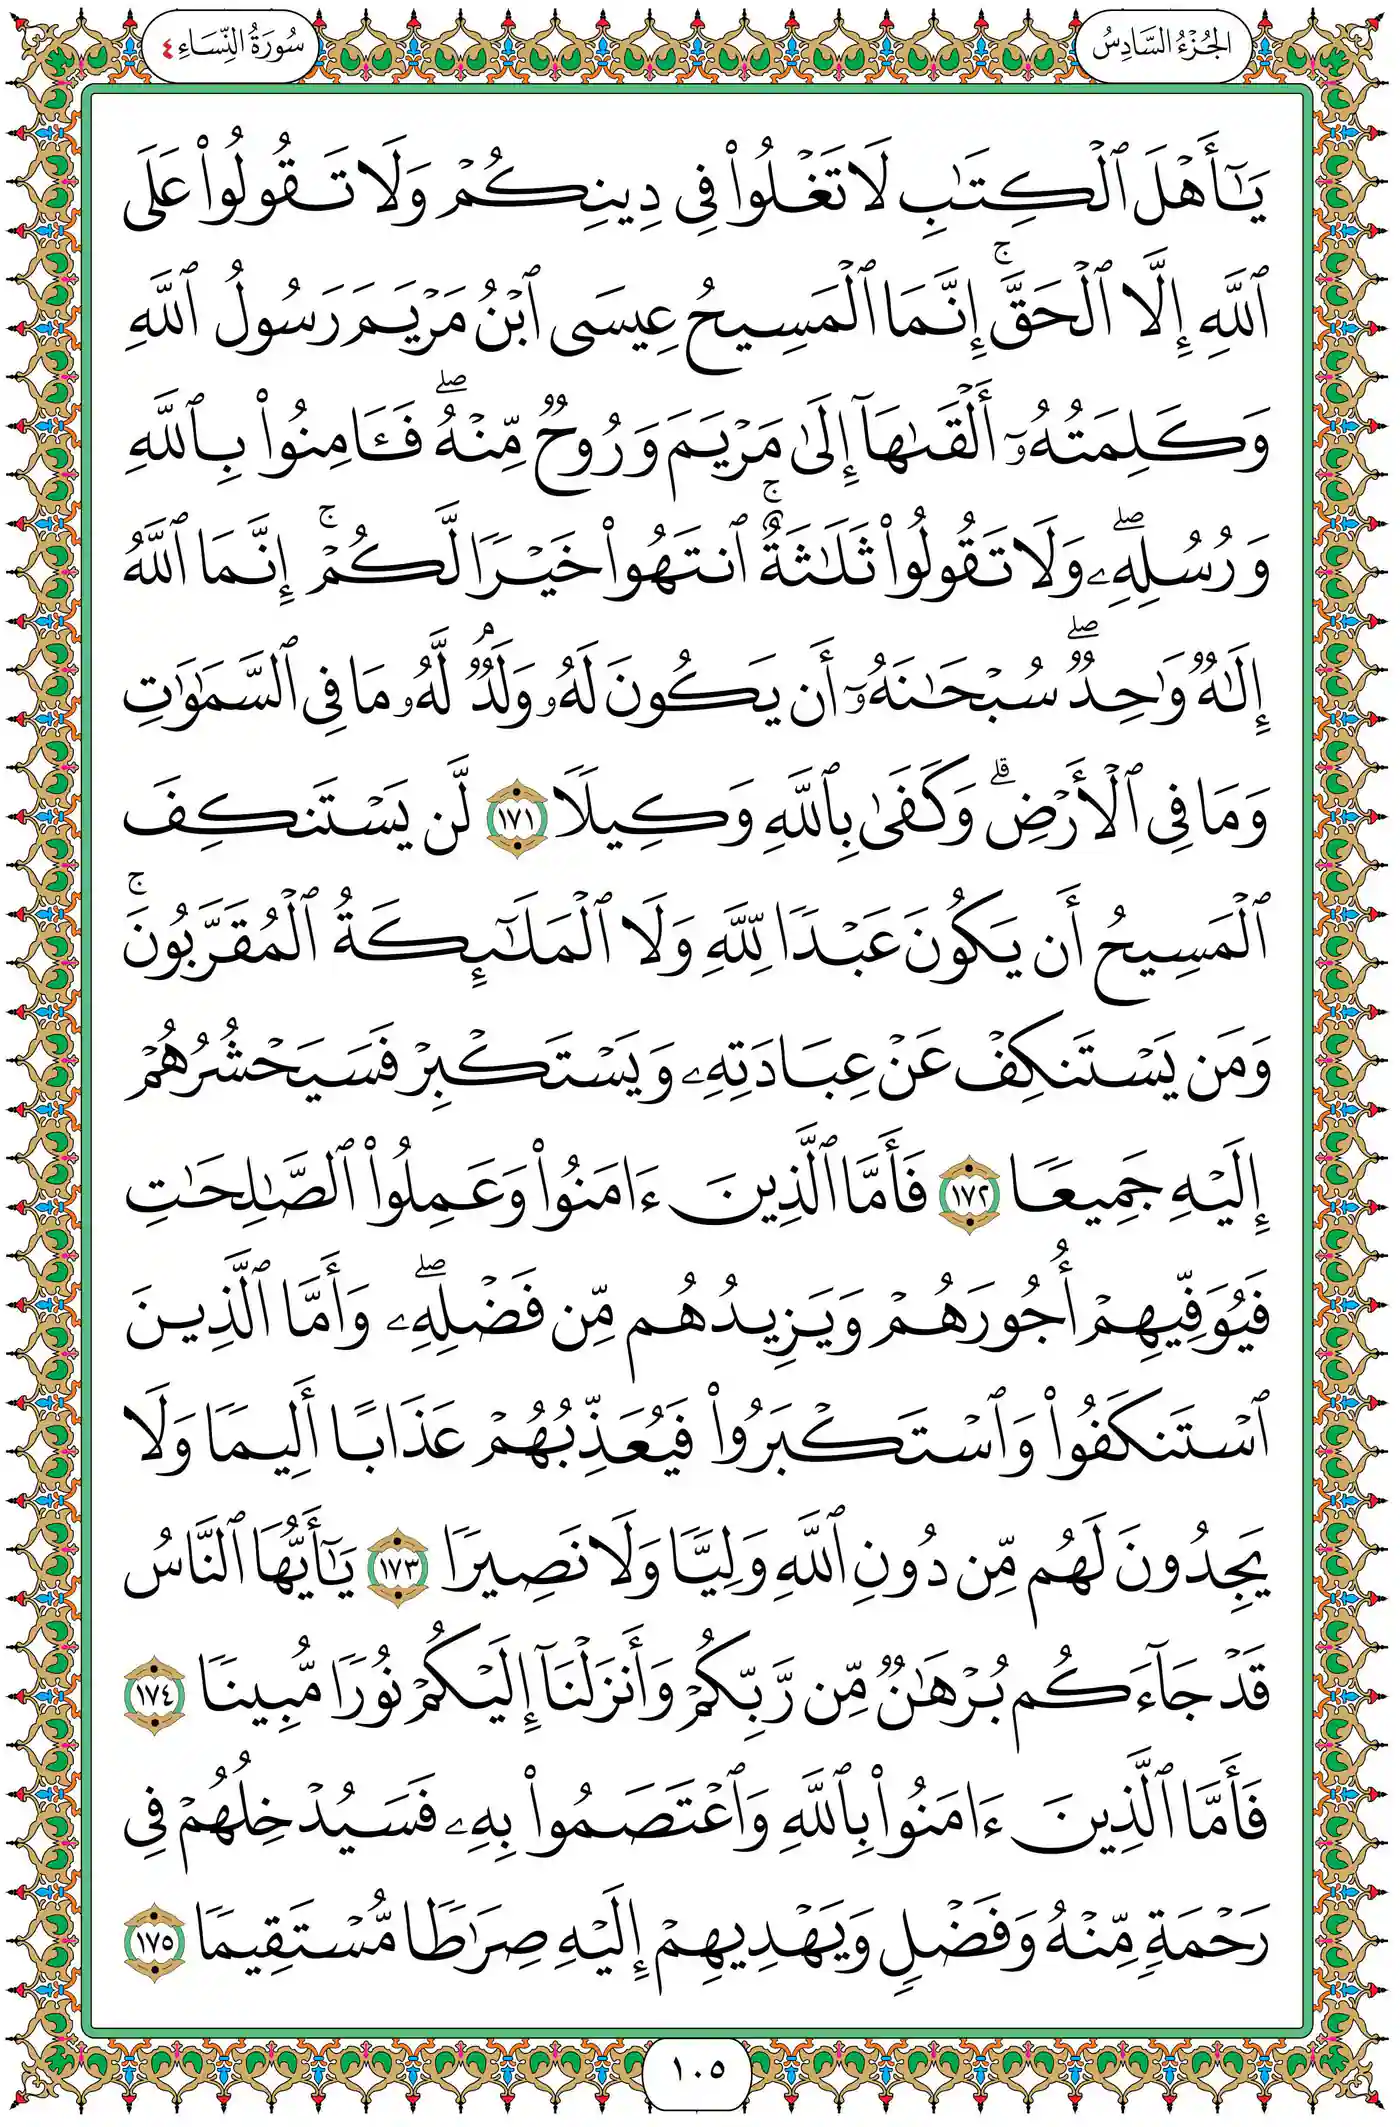 الجُزْءُ السَّادِسُ
سُورَةُ النِّسَاءِ ٤
يَـٰٓأَهْلَ ٱلْكِتَـٰبِ لَا تَغْلُوا۟ فِى دِينِكُمْ وَلَا تَقُولُوا۟ عَلَى
ٱللَّهِ إِلَّا ٱلْحَقَّ ۚ إِنَّمَا ٱلْمَسِيحُ عِيسَى ٱبْنُ مَرْيَمَ رَسُولُ ٱللَّهِ
وَكَلِمَتُهُۥٓ أَلْقَىٰهَآ إِلَىٰ مَرْيَمَ وَرُوحٌ مِّنْهُ ۖ فَـَٔامِنُوا۟ بِٱللَّهِ
وَرُسُلِهِۦ ۖ وَلَا تَقُولُوا۟ ثَلَـٰثَةٌ ۚ ٱنتَهُوا۟ خَيْرًا لَّكُمْ ۚ إِنَّمَا ٱللَّهُ
إِلَـٰهٌ وَٰحِدٌ ۖ سُبْحَـٰنَهُۥٓ أَن يَكُونَ لَهُۥ وَلَدٌ ۘ لَّهُۥ مَا فِى ٱلسَّمَـٰوَٰتِ
وَمَا فِى ٱلْأَرْضِ ۗ وَكَفَىٰ بِٱللَّهِ وَكِيلًا ١٧١ لَّن يَسْتَنكِفَ
ٱلْمَسِيحُ أَن يَكُونَ عَبْدًا لِّلَّهِ وَلَا ٱلْمَلَـٰٓئِكَةُ ٱلْمُقَرَّبُونَ ۚ
وَمَن يَسْتَنكِفْ عَنْ عِبَادَتِهِۦ وَيَسْتَكْبِرْ فَسَيَحْشُرُهُمْ
إِلَيْهِ جَمِيعًا ١٧٢ فَأَمَّا ٱلَّذِينَ ءَامَنُوا۟ وَعَمِلُوا۟ ٱلصَّـٰلِحَـٰتِ
فَيُوَفِّيهِمْ أُجُورَهُمْ وَيَزِيدُهُم مِّن فَضْلِهِۦ ۖ وَأَمَّا ٱلَّذِينَ
ٱسْتَنكَفُوا۟ وَٱسْتَكْبَرُوا۟ فَيُعَذِّبُهُمْ عَذَابًا أَلِيمًا وَلَا
يَجِدُونَ لَهُم مِّن دُونِ ٱللَّهِ وَلِيًّا وَلَا نَصِيرًا ١٧٣ يَـٰٓأَيُّهَا ٱلنَّاسُ
قَدْ جَآءَكُم بُرْهَـٰنٌ مِّن رَّبِّكُمْ وَأَنزَلْنَآ إِلَيْكُمْ نُورًا مُّبِينًا ١٧٤
فَأَمَّا ٱلَّذِينَ ءَامَنُوا۟ بِٱللَّهِ وَٱعْتَصَمُوا۟ بِهِۦ فَسَيُدْخِلُهُمْ فِى
رَحْمَةٍ مِّنْهُ وَفَضْلٍ وَيَهْدِيهِمْ إِلَيْهِ صِرَٰطًا مُّسْتَقِيمًا ١٧٥
١٠٥